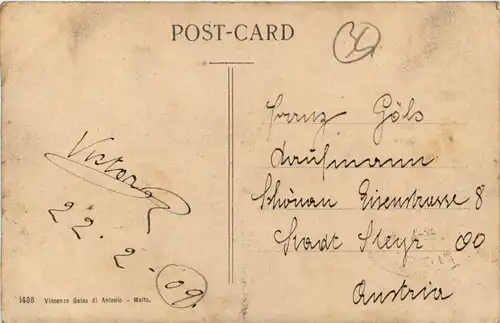 POST-CARD
Victor
22.2.09.
Franz Göls
Kaufmann
Schönau Eisenstrasse 8
Stadt Steyr OÖ
Austria
1486 Vincenzo Galea di Antonio - Malta.